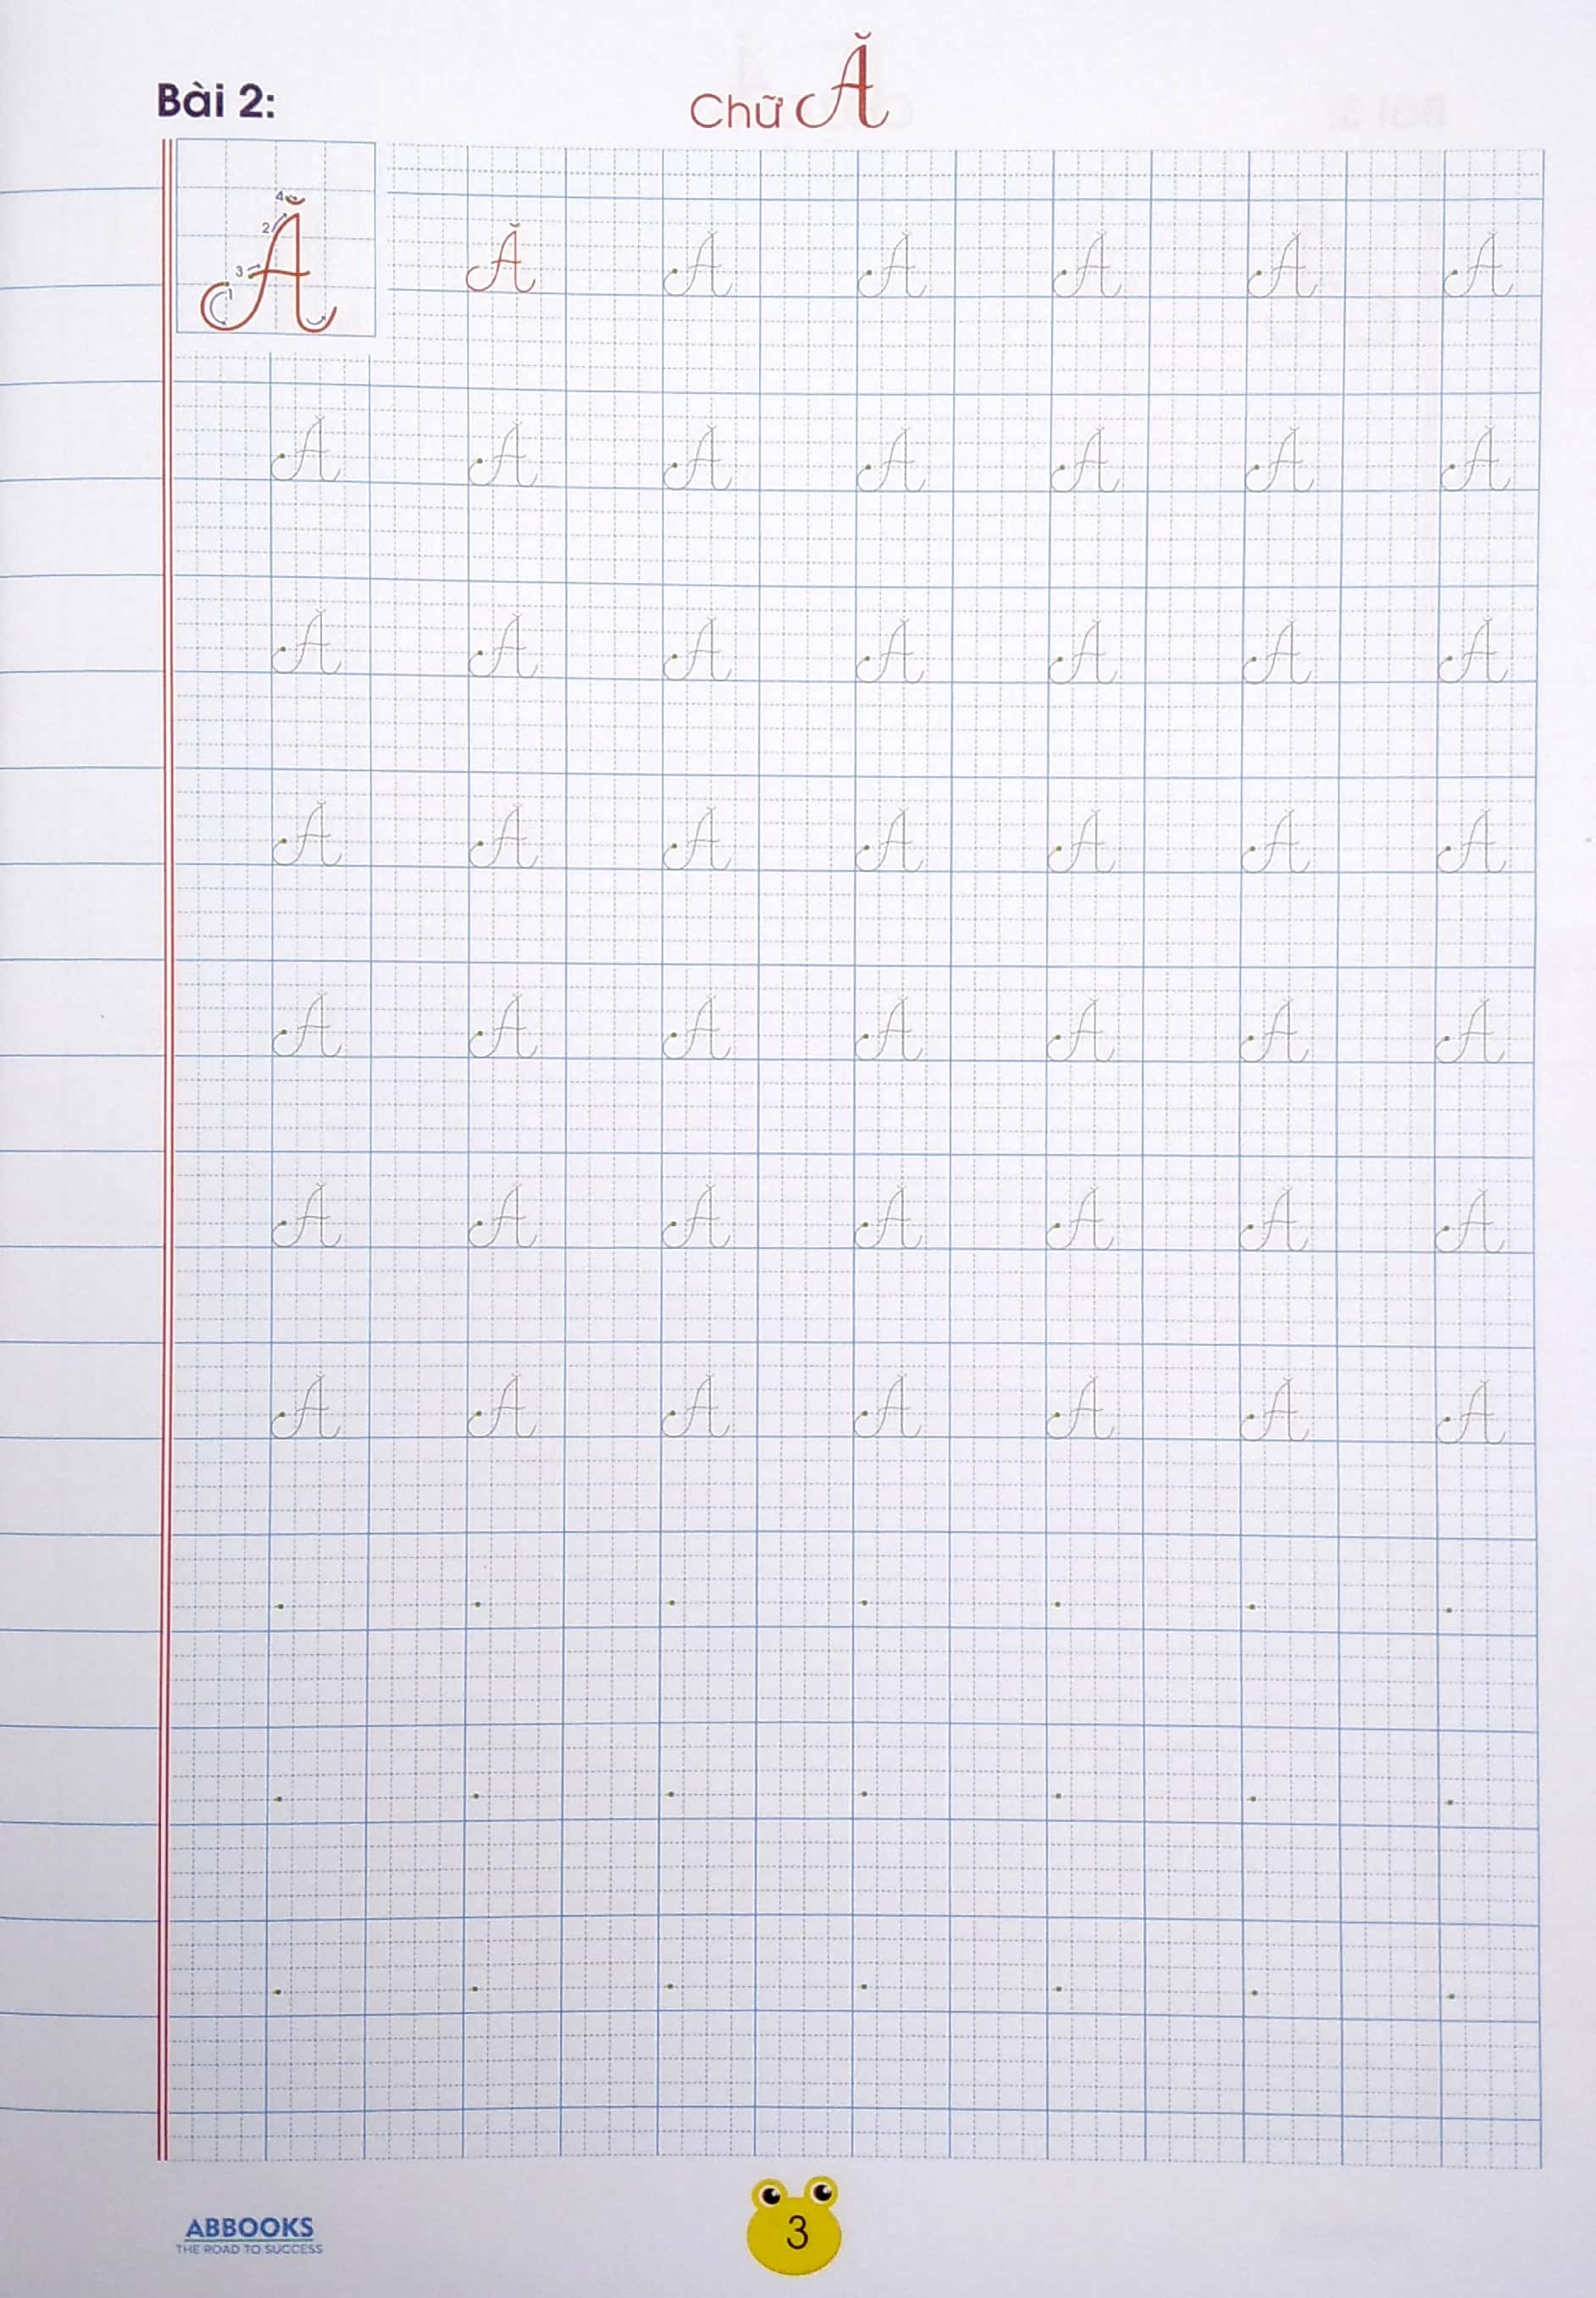 Bài 2:
Chữ Ă
4
2
3
1
Ă
Ă Ă Ă Ă Ă Ă
Ă Ă Ă Ă Ă Ă Ă
Ă Ă Ă Ă Ă Ă Ă
Ă Ă Ă Ă Ă Ă Ă
Ă Ă Ă Ă Ă Ă Ă
Ă Ă Ă Ă Ă Ă Ă
Ă Ă Ă Ă Ă Ă Ă
ABBOOKS
THE ROAD TO SUCCESS
3